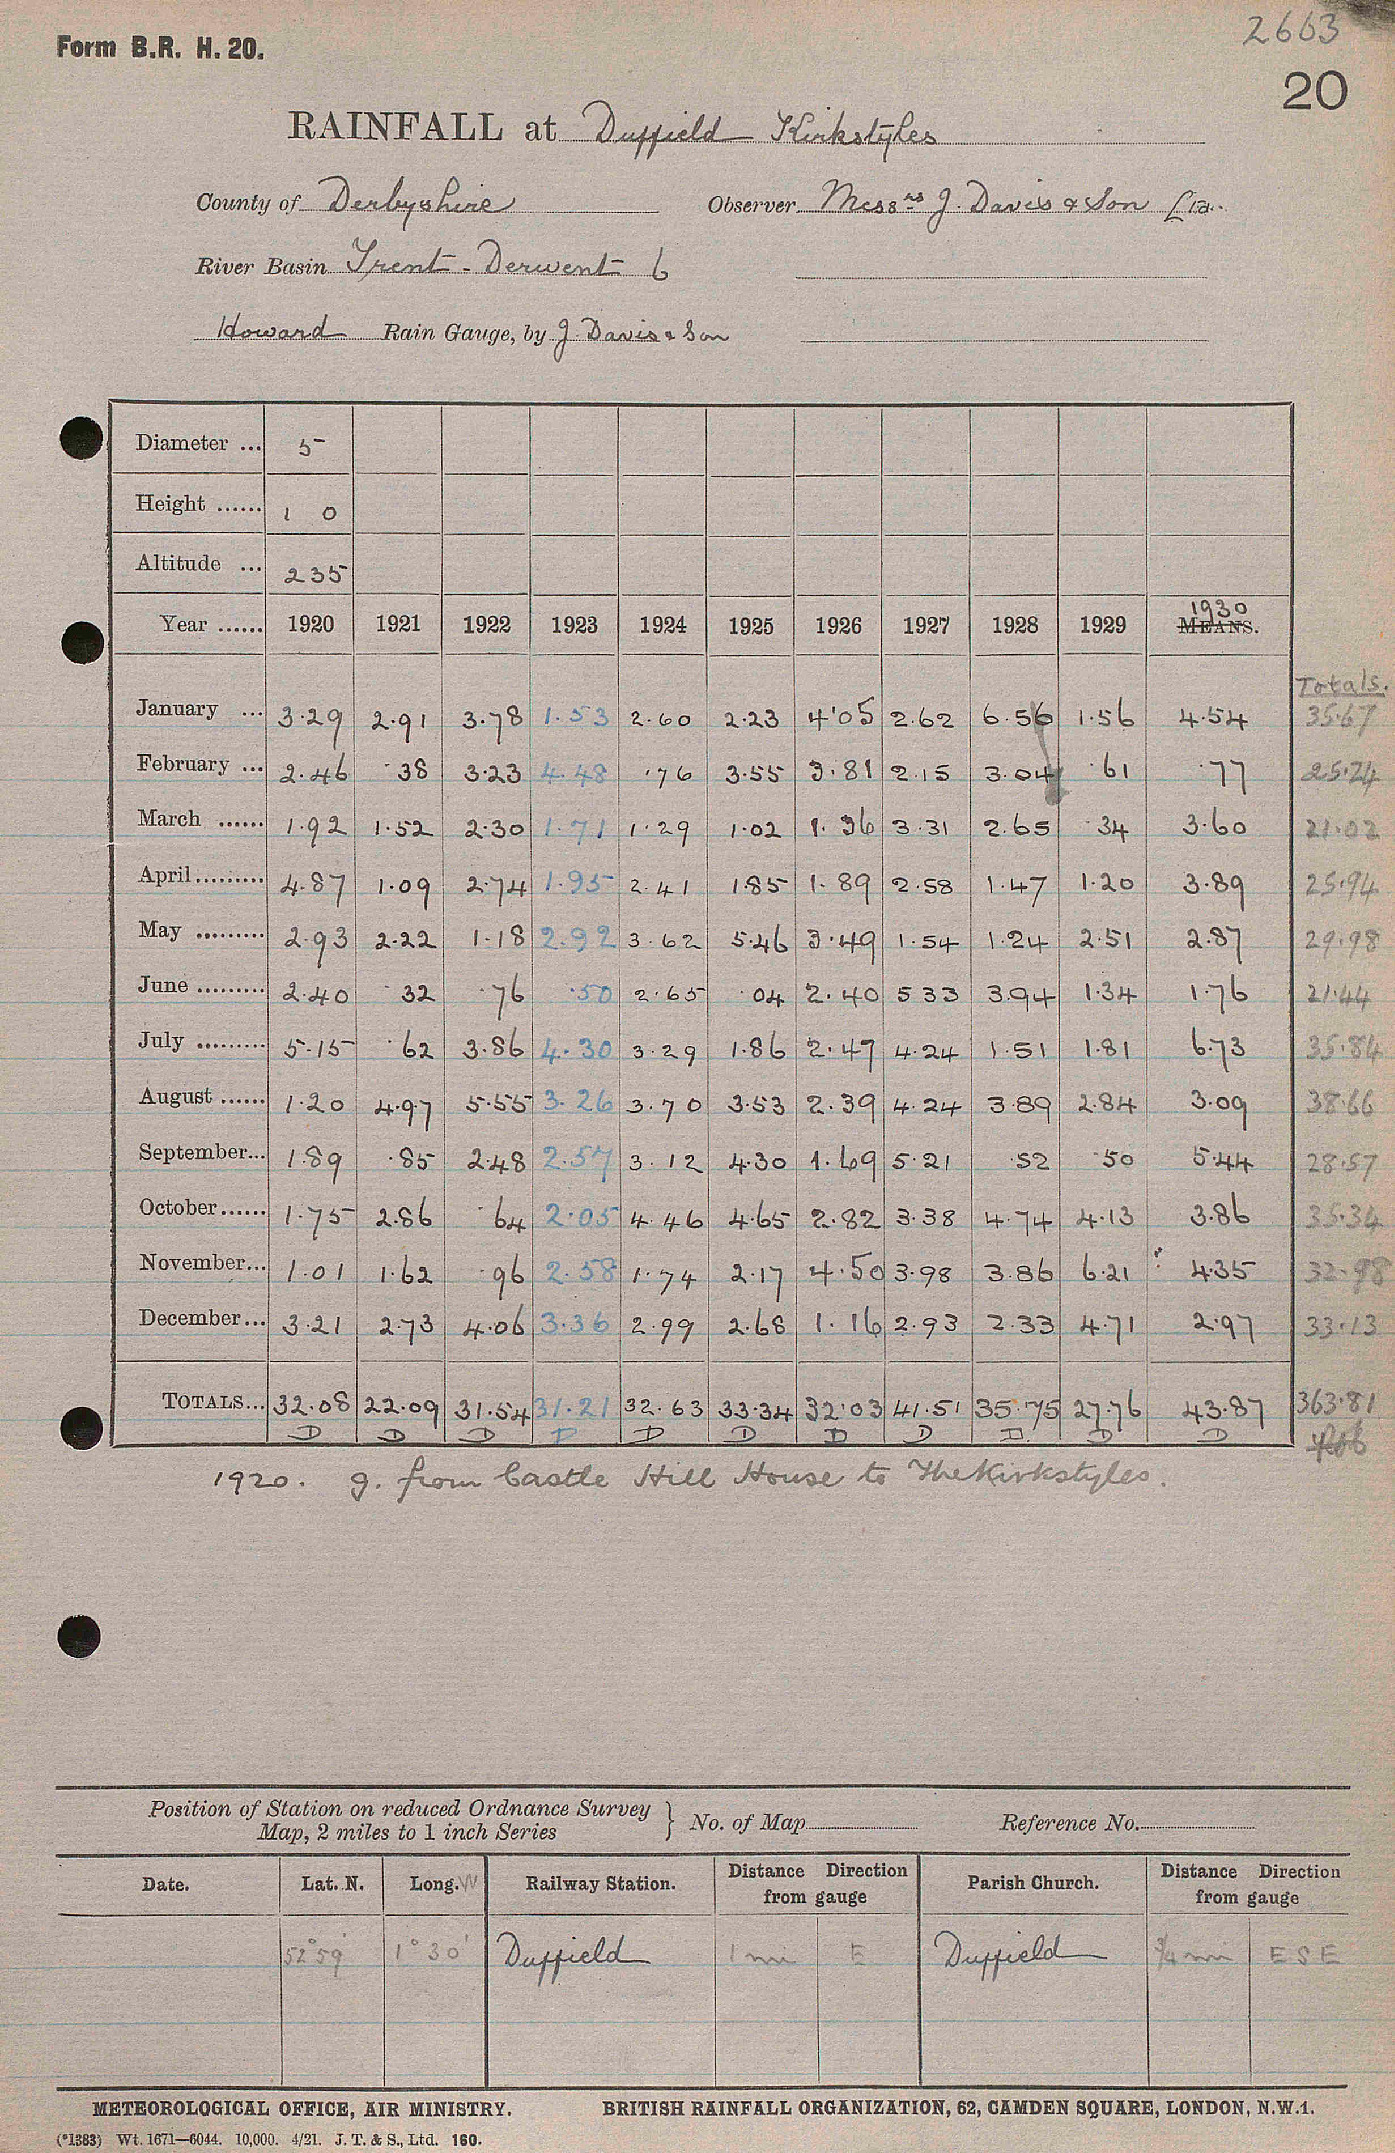 2663
Form B.R. H. 20.
20
RAINFALL at Duffield Kirkstyles
County of Derbyshire Observer Messrs J. Davis & Son Ltd.
River Basin Trent - Derwent 6
Howard Rain Gauge, by J. Davis & Son
Diameter ... 5
Height ...... 1 0
Altitude ... 235
Year ...... 1920 1921 1922 1923 1924 1925 1926 1927 1928 1929 1930 MEANS.
Totals.
January ... 3.29 2.91 3.78 1.53 2.60 2.23 4.05 2.62 6.56 1.56 4.54 35.67
February ... 2.46 .38 3.23 4.48 .76 3.55 3.81 2.15 3.04 .61 .77 25.24
March ...... 1.92 1.52 2.30 1.71 1.29 1.02 1.36 3.31 2.65 .34 3.60 21.02
April......... 4.87 1.09 2.74 1.95 2.41 1.85 1.89 2.58 1.47 1.20 3.89 25.94
May ......... 2.93 2.22 1.18 2.92 3.62 5.46 3.49 1.54 1.24 2.51 2.87 29.98
June ......... 2.40 .32 .76 .50 2.65 .04 2.40 5.33 3.94 1.34 1.76 21.44
July ......... 5.15 .62 3.86 4.30 3.29 1.86 2.47 4.24 1.51 1.81 6.73 35.84
August ...... 1.20 4.97 5.55 3.26 3.70 3.53 2.39 4.24 3.89 2.84 3.09 38.66
September... 1.89 .85 2.48 2.57 3.12 4.30 1.69 5.21 .52 .50 5.44 28.57
October...... 1.75 2.86 .64 2.05 4.46 4.65 2.82 3.38 4.74 4.13 3.86 35.34
November... 1.01 1.62 .96 2.58 1.74 2.17 4.50 3.98 3.86 6.21 4.35 32.98
December... 3.21 2.73 4.06 3.36 2.99 2.68 1.16 2.93 2.33 4.71 2.97 33.13
TOTALS... 32.08 22.09 31.54 31.21 32.63 33.34 32.03 41.51 35.75 27.76 43.87 363.81
D D D D D D D D D D D
1920. g. from Castle Hill House to The Kirkstyles.
Position of Station on reduced Ordnance Survey Map, 2 miles to 1 inch Series } No. of Map Reference No.
Date. Lat. N. Long. W Railway Station. Distance Direction from gauge Parish Church. Distance Direction from gauge
52°59' 1°30' Duffield 1 mi E Duffield 3/4 mi ESE
METEOROLOGICAL OFFICE, AIR MINISTRY. BRITISH RAINFALL ORGANIZATION, 62, CAMDEN SQUARE, LONDON, N.W.1.
(*1383) Wt. 1671—6044. 10,000. 4/21. J. T. & S., Ltd. 160.